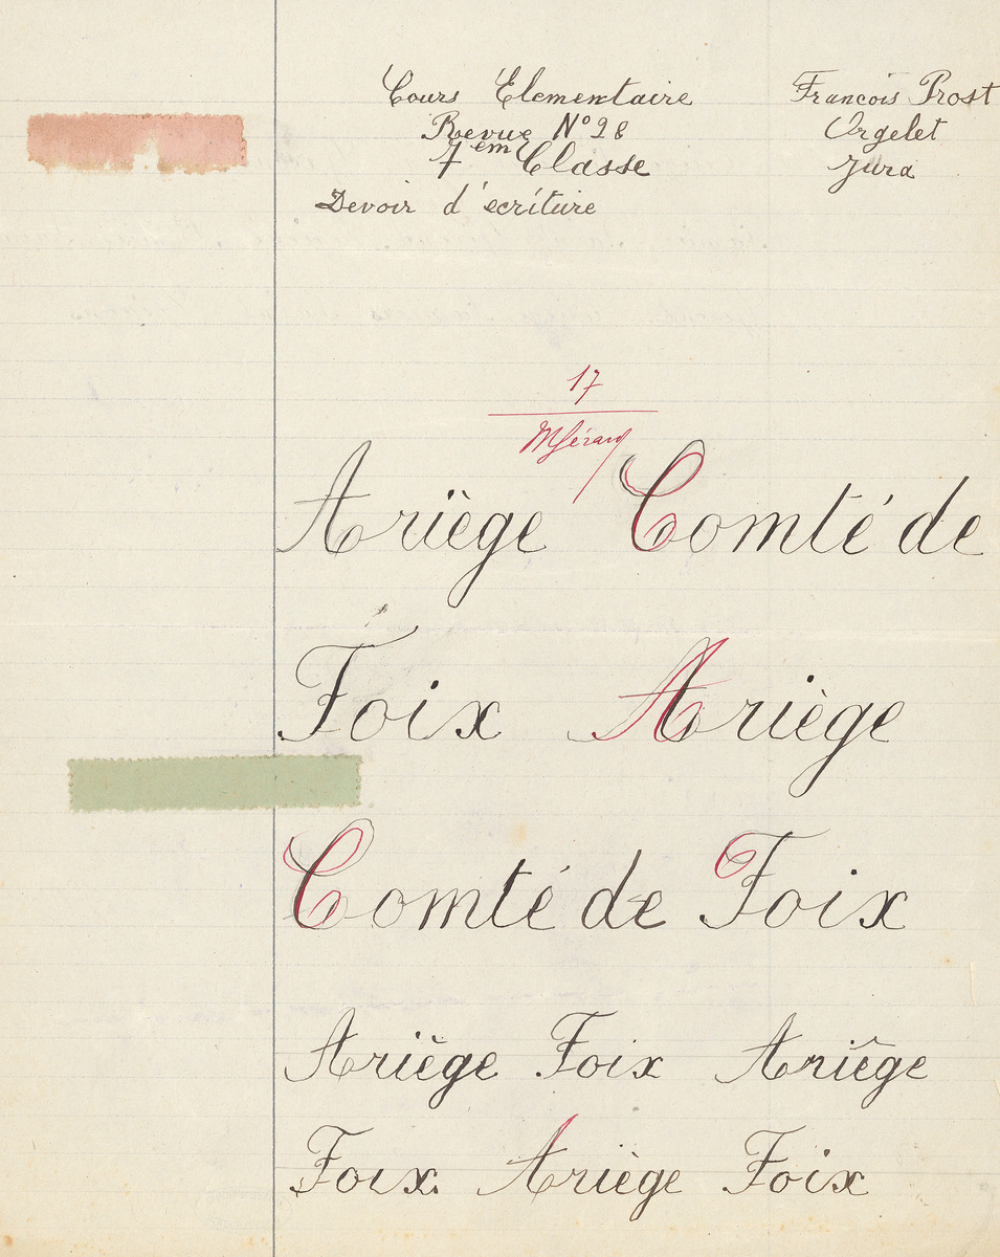 Cours Elementaire
Revue N° 28
7em Classe
Devoir d'ecriture
Francois Prost
Orgelet
Jura
17
Ariège Comté de
Foix Ariège
Comté de Foix
Ariège Foix Ariège
Foix Ariège Foix